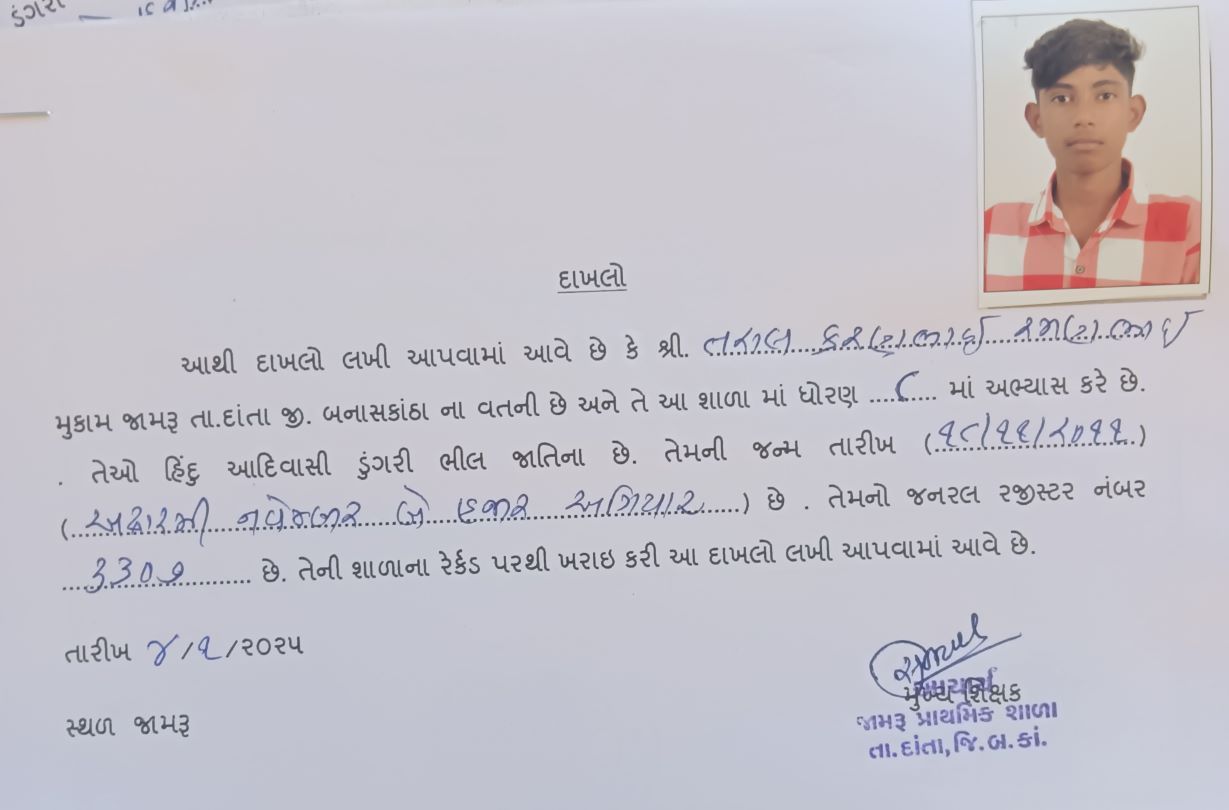 ડુંગરી
દાખલો
આથી દાખલો લખી આપવામાં આવે છે કે શ્રી. તરાલ કરણભાઈ રમણભાઈ
મુકામ જામરૂ તા.દાંતા જી. બનાસકાંઠા ના વતની છે અને તે આ શાળા માં ધોરણ ....૮.... માં અભ્યાસ કરે છે.
. તેઓ હિંદુ આદિવાસી ડુંગરી ભીલ જાતિના છે. તેમની જન્મ તારીખ (૧૮/૧૧/૨૦૧૧)
(અઢારમી નવેમ્બર બે હજાર અગિયાર) છે . તેમનો જનરલ રજીસ્ટર નંબર
૩૩૦૭ છે. તેની શાળાના રેર્કડ પરથી ખરાઇ કરી આ દાખલો લખી આપવામાં આવે છે.
તારીખ ૪/૧/૨૦૨૫
સ્થળ જામરૂ
આચાર્ય
મુખ્ય શિક્ષક
જામરૂ પ્રાથમિક શાળા
તા.દાંતા,જિ.બ.કાં.